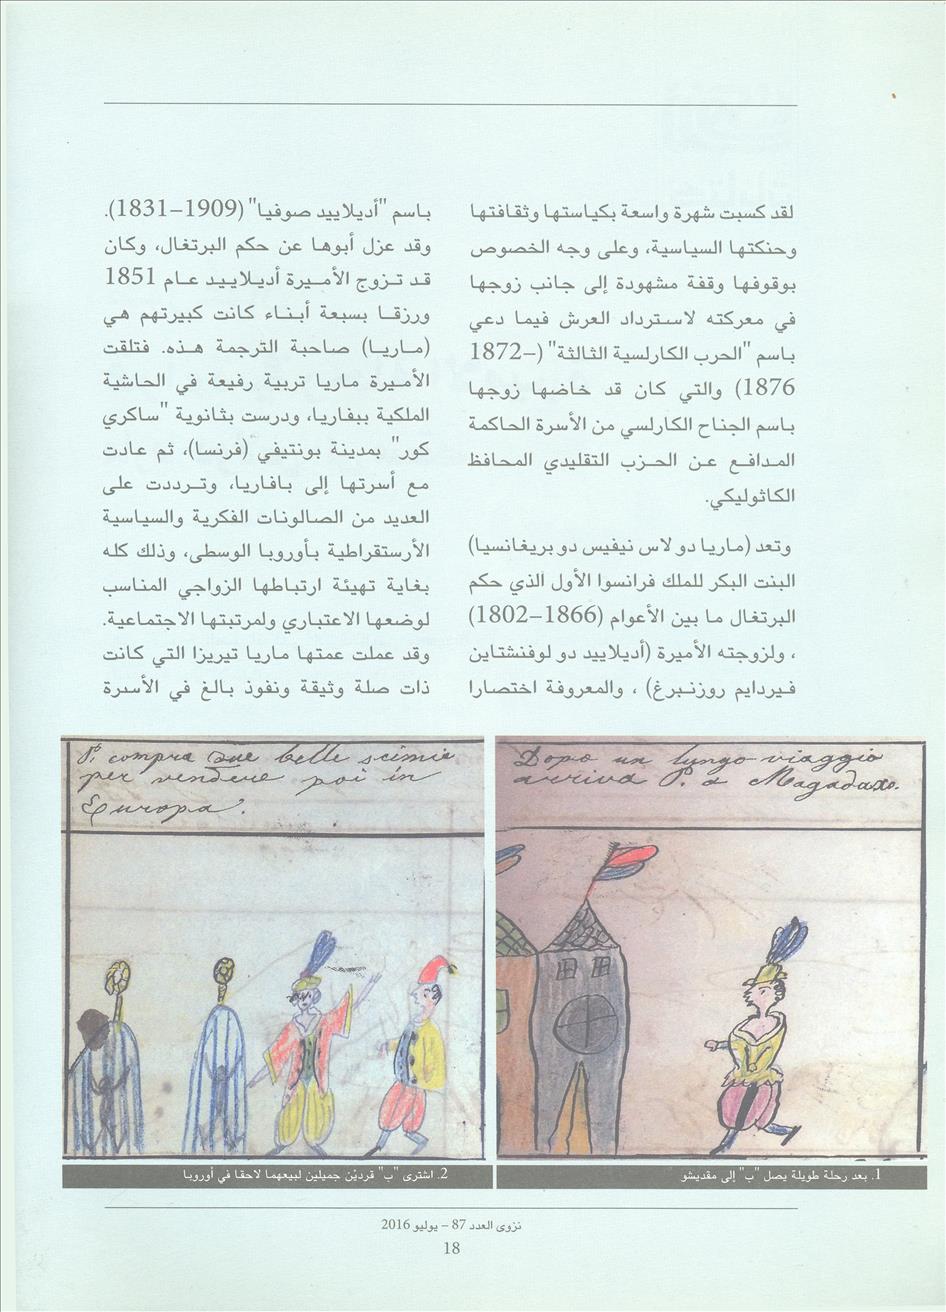 لقد كسبت شهرة واسعة بكياستها وثقافتها
وحنكتها السياسية، وعلى وجه الخصوص
بوقوفها وقفة مشهودة إلى جانب زوجها
في معركته لاسترداد العرش فيما دعي
باسم "الحرب الكارلسية الثالثة" (1872–
1876) والتي كان قد خاضها زوجها
باسم الجناح الكارلسي من الأسرة الحاكمة
المدافع عن الحزب التقليدي المحافظ
الكاثوليكي.
وتعد (ماريا دو لاس نيفيس دو بريغانسيا)
البنت البكر للملك فرانسوا الأول الذي حكم
البرتغال ما بين الأعوام (1866–1802)
، ولزوجته الأميرة (أديلاييد دو لوفنشتاين
فيردايم روزنبرغ) ، والمعروفة اختصارا
باسم "أديلاييد صوفيا" (1909–1831).
وقد عزل أبوها عن حكم البرتغال، وكان
قد تزوج الأميرة أديلاييد عام 1851
ورزقا بسبعة أبناء كانت كبيرتهم هي
(ماريا) صاحبة الترجمة هذه. فتلقت
الأميرة ماريا تربية رفيعة في الحاشية
الملكية ببفاريا، ودرست بثانوية "ساكري
كور" بمدينة بونتيفي (فرنسا)، ثم عادت
مع أسرتها إلى بافاريا، وترددت على
العديد من الصالونات الفكرية والسياسية
الأرستقراطية بأوروبا الوسطى، وذلك كله
بغاية تهيئة ارتباطها الزواجي المناسب
لوضعها الاعتباري ولمرتبتها الاجتماعية.
وقد عملت عمتها ماريا تيريزا التي كانت
ذات صلة وثيقة ونفوذ بالغ في الأسرة
Dopo un lungo viaggio
arriva P. a Magadaxo.
1. بعد رحلة طويلة يصل "ب" إلى مقديشو
P. compra due belle scimie
per vendere poi in
Europa.
2. اشترى "ب" قرديْن جميلين لبيعهما لاحقا في أوروبا
نزوى العدد 87 – يوليو 2016
18